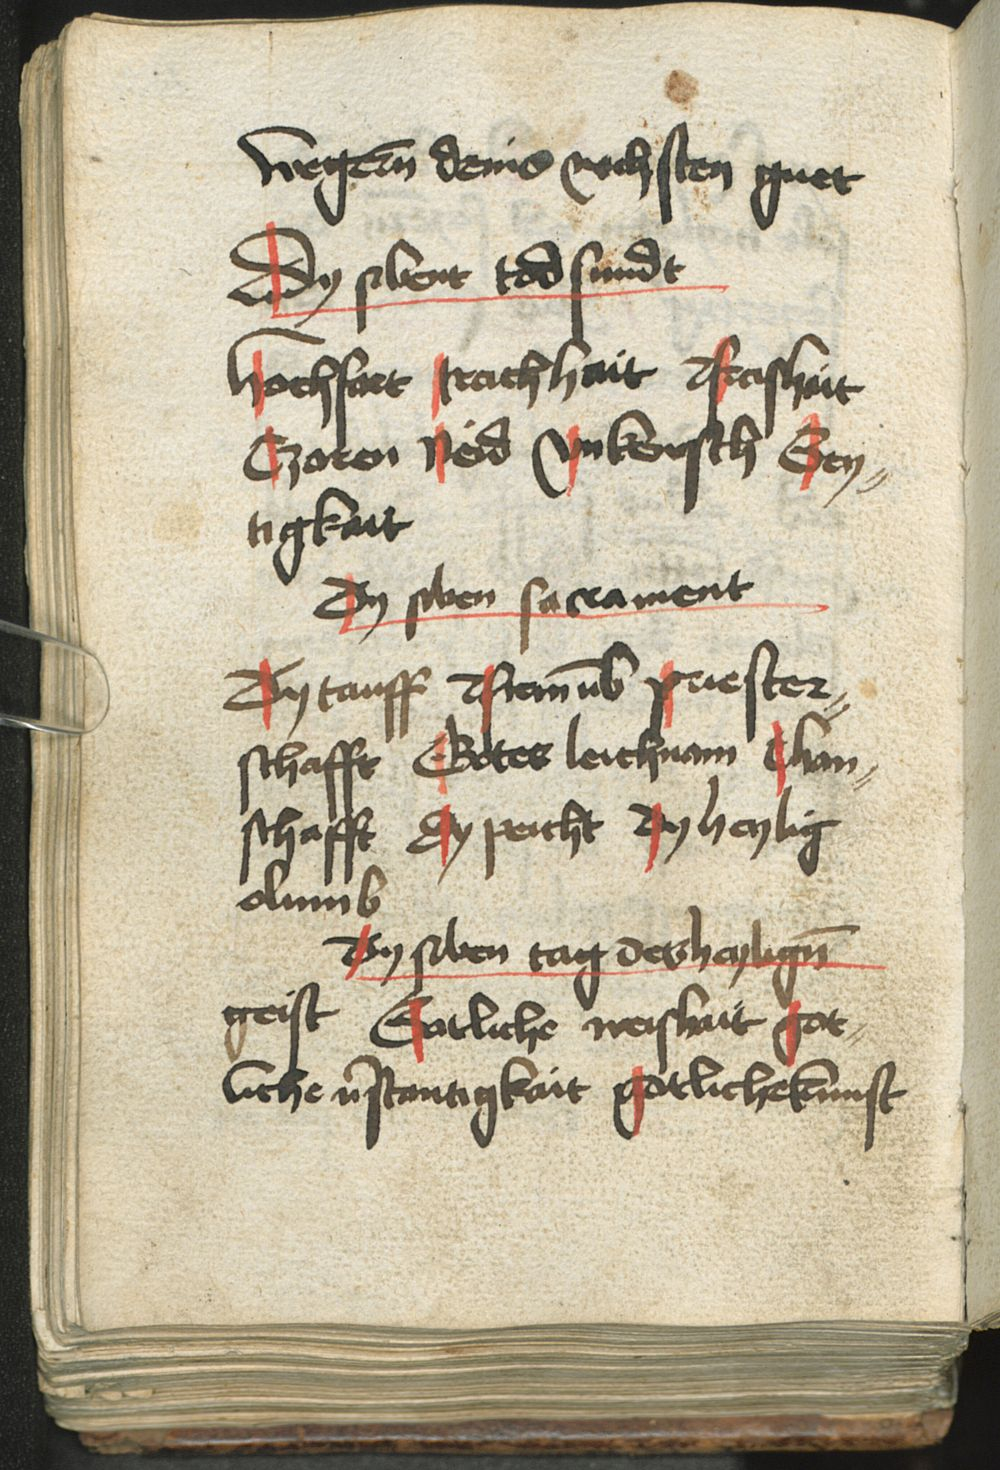 wegern̄ deins nechsten guet
Dy sibent tod sundt
Hochfart trachhait Frashait
Czoren Neid Vnkeusch Gey¬
tigkait
Dy siben sacrament
Dy tauff Firmūb priester¬
schafft Gotes leichnam Chan¬
schafft Dy peicht Dy heylig
olumb
Dy siben tag des heylign̄
geist Gotliche weishait got¬
liche v̄stantigkait gotliche kunst